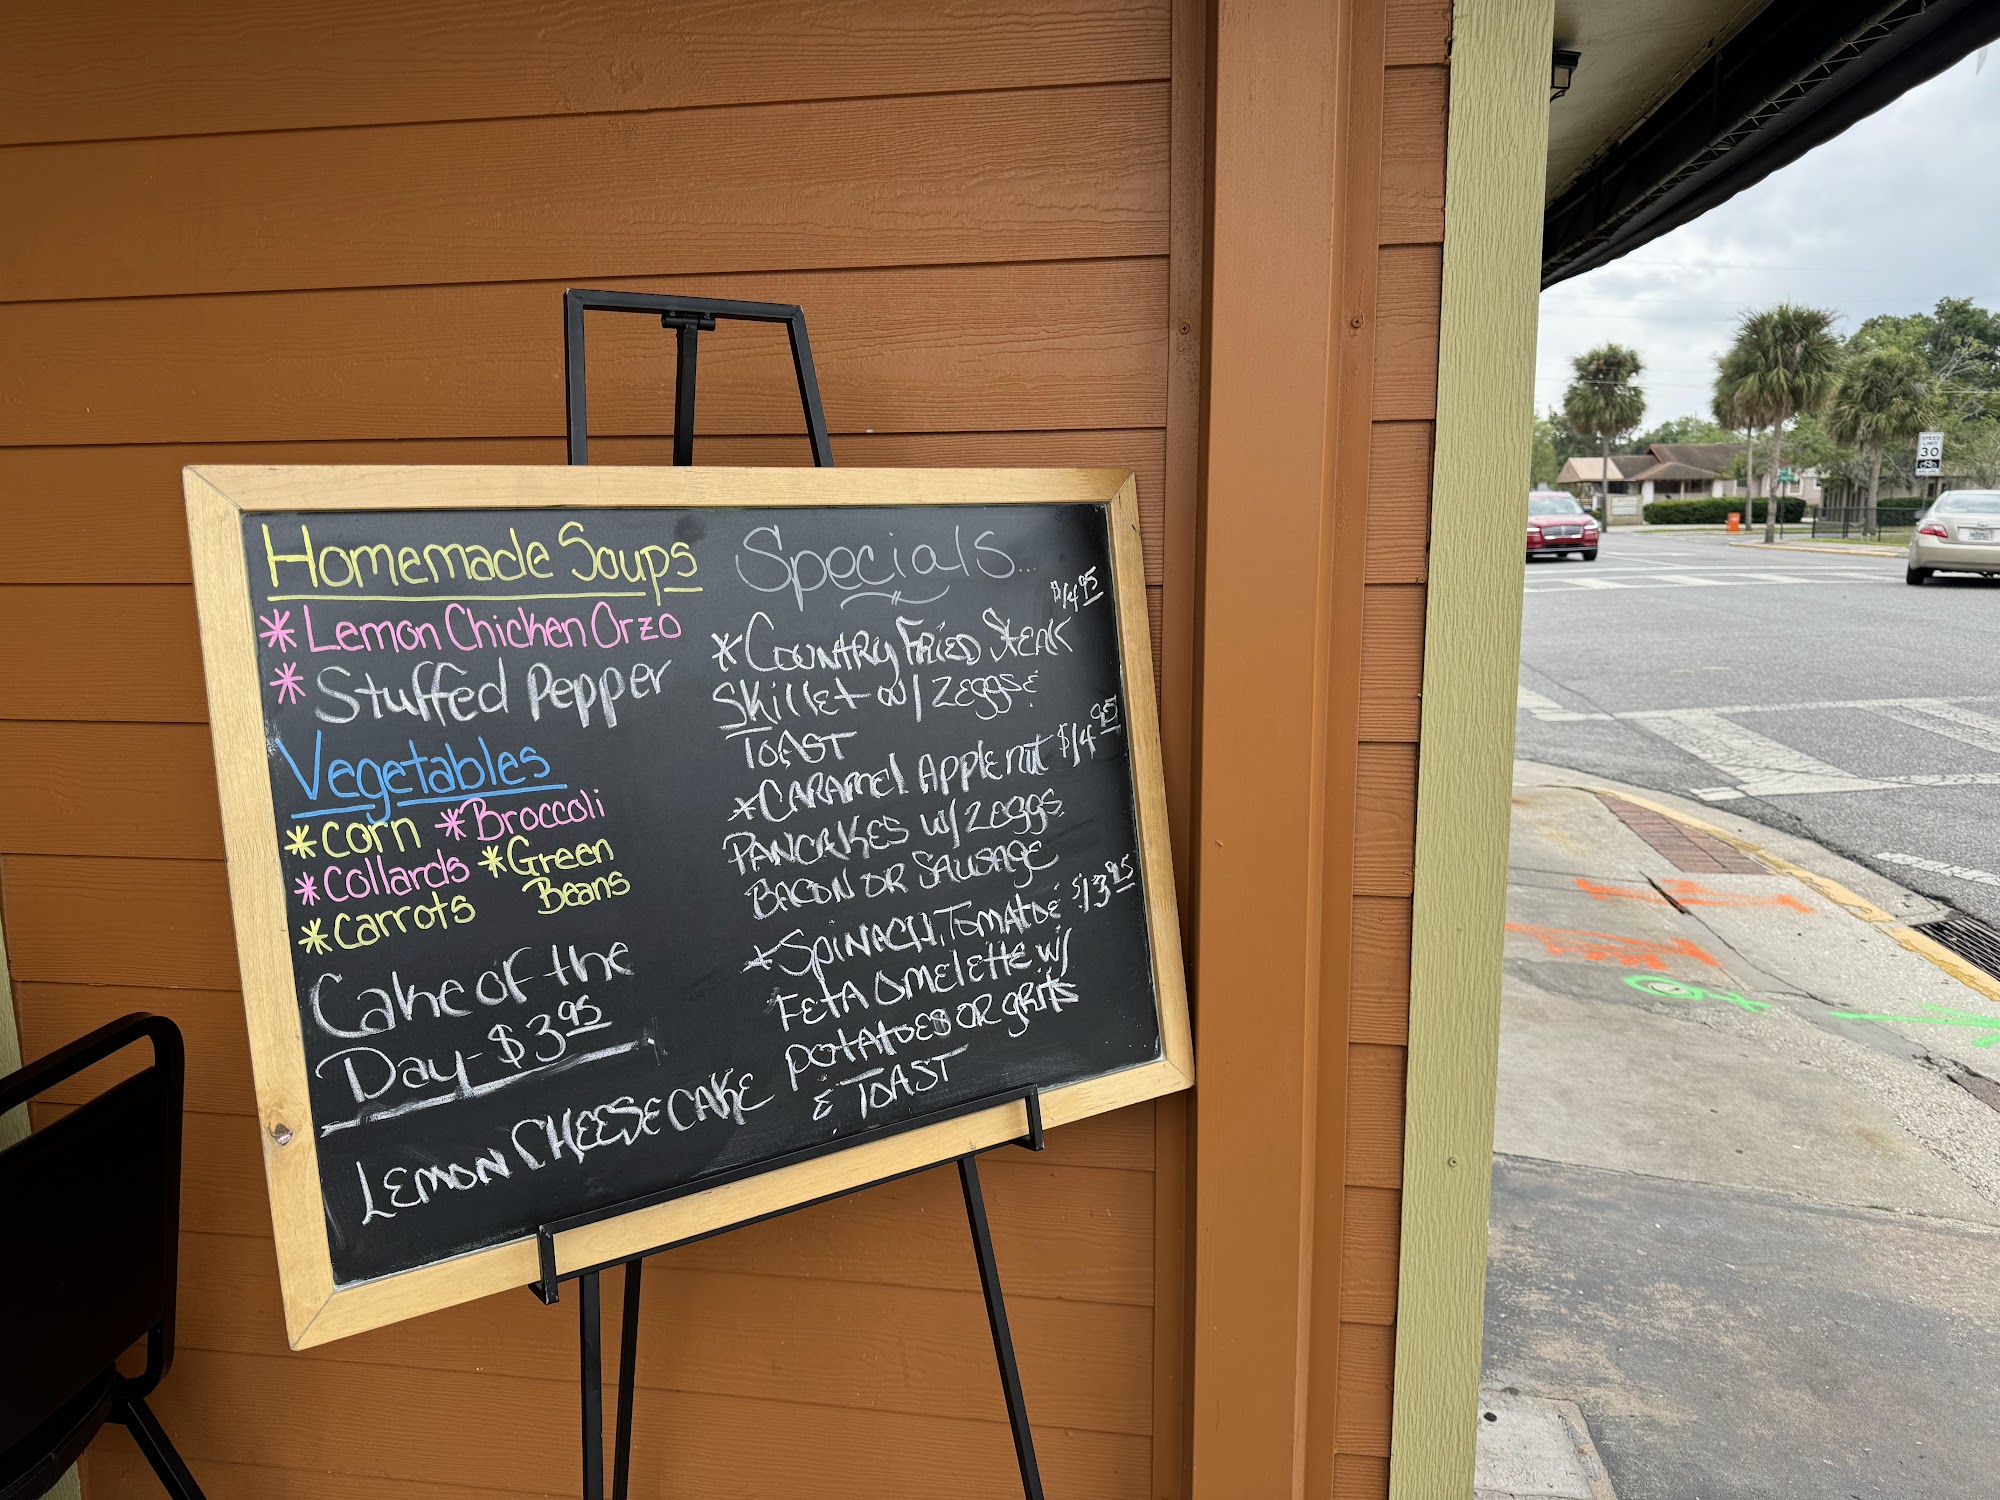 Homemade Soups
*Lemon Chicken Orzo
*Stuffed Pepper
Vegetables
*Corn *Broccoli
*Collards *Green
Beans
*Carrots
Cake of the
Day - $3.95
LEMON CHEESECAKE
Specials...
$14.95
*COUNTRY FRIED STEAK
Skillet w/ 2eggs &
TOAST
*CARAMEl APPle nut $14.95
PANCAKES w/ 2eggs
BACON OR SAUSAGE
*SPINACH, TOMATOE $13.95
FETA OMELETTE w/
POTATOES OR gRITS
& TOAST
SPEED
LIMIT
30